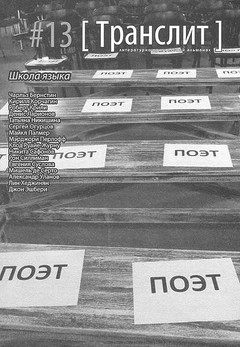 #13 [Транслит]
Школа языка
ПОЭТ ПОЭТ
ПОЭТ ПОЭТ
Чарльз Бернстин
Кирилл Корчагин
Роберт Крили
Денис Ларионов
Татьяна Никишина
Сергей Огурцов
Майкл Палмер
Марджори Перлофф
Клод Руайе-Журну
Никита Сафонов
Рон Силлиман
Евгения Суслова
Мишель де Серто
Александр Уланов
Лин Хеджинян
Джон Эшбери
ПОЭТ ПОЭТ
ПОЭТ ПОЭТ